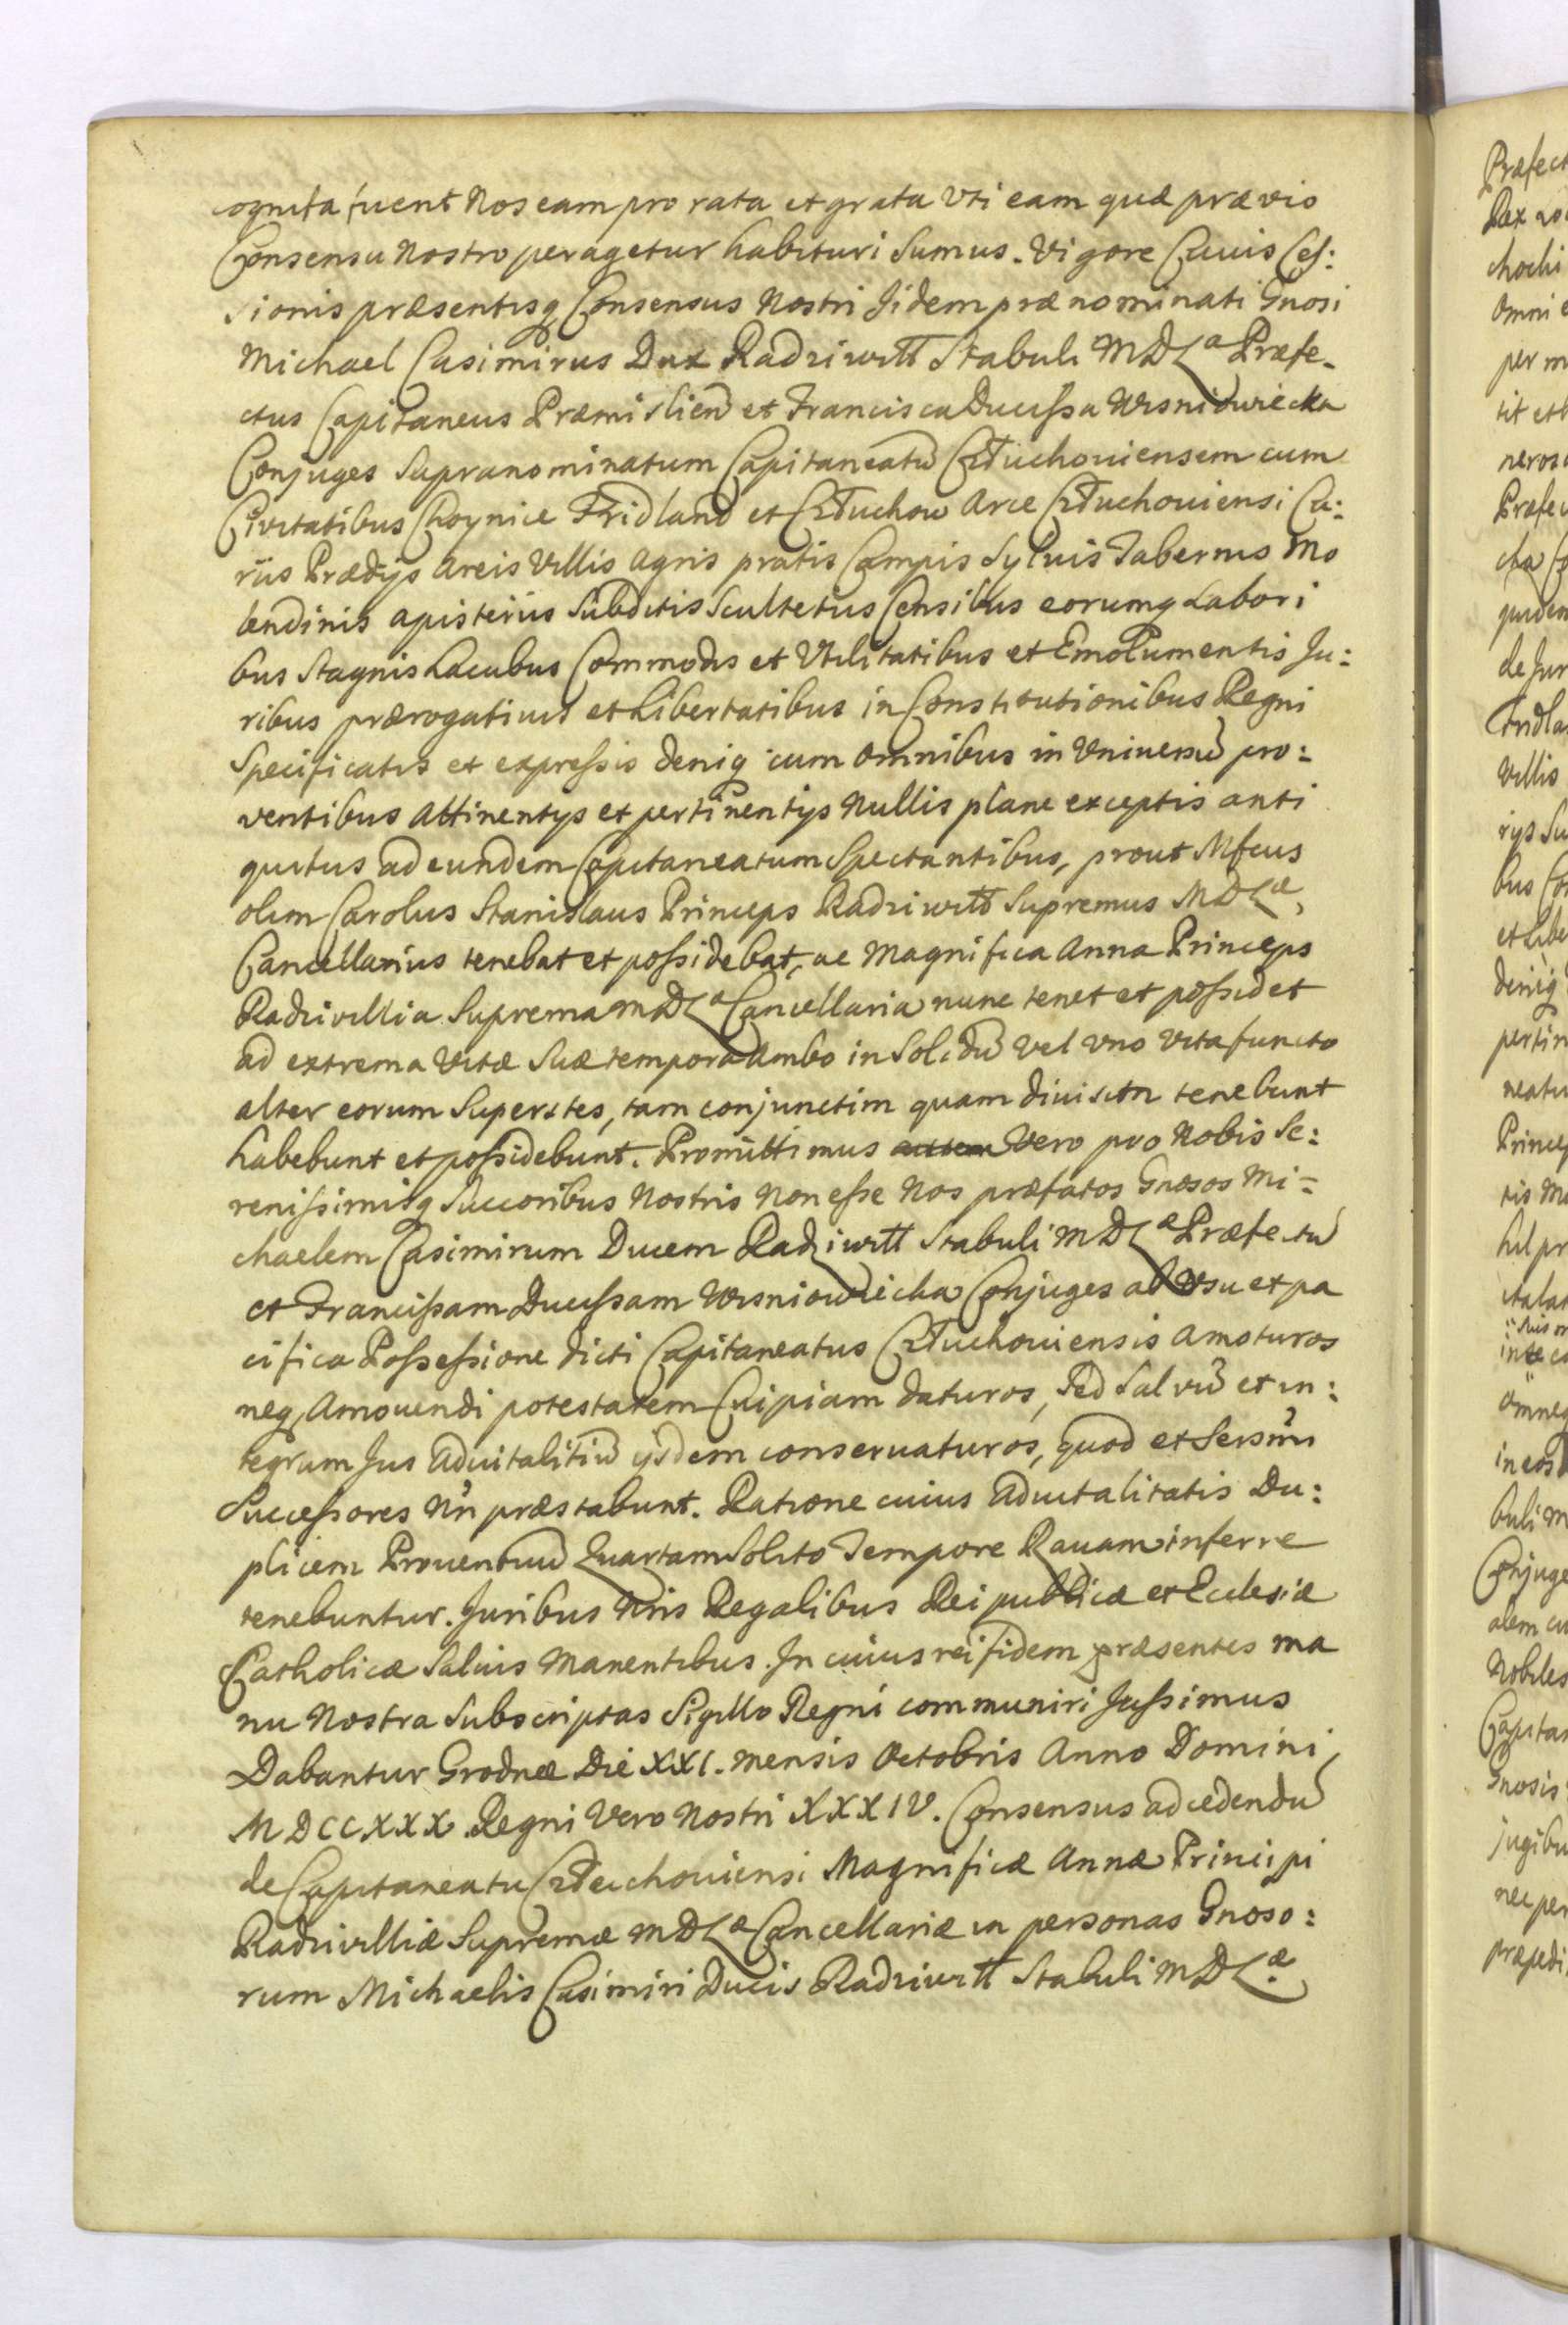 cognita fuerit Nos eam pro rata et grata Vti eam quæ prævio
Consensu Nostro peragetur habituri Sumus. Vigore Cuius Ces:
sionis præsentisq Consensus Nostri Jidem prænominati Gnosi
Michael Casimirus Dux Radziwiłł Stabuli MDLæ Præfe-
ctus Capitaneus Præmislien et Francisca Ducissa Wisniowiecka
Conjuges Supranominatum Capitaneatũ Człuchouiensem cum
Civitatibus Choynice Fridland et Człuchow Arce Człuchouiensi Cu:
riis Prædijs Areis Villis Agris pratis Campis Syluis Tabernis Mo
lendinis apisteriis Subditis Scultetiis Censibus eorumq Labori
bus Stagnis Lacubus Commodis et Vtilitatibus et Emolumentis Ju:
ribus prærogatiuis et Libertatibus in Constitutionibus Regni
Specificatis et expressis deniq cum omnibus in Vniuersũ pro:
ventibus Attinentijs et pertinentijs Nullis plane exceptis anti
quitus ad eundem Capitaneatum Spectantibus, prout Mfcus
olim Carolus Stanislaus Princeps Radziwiłł Supremus MDLæ
Cancellarius tenebat et possidebat, ac Magnifica Anna Princeps
Radzivillia Suprema MDLæ Cancellaria nunc tenet et possidet
ad extrema Vitæ Suæ tempora Ambo in Solidũ vel Vno Vita functo
alter eorum Superstes, tam conjunctim quam diuisim tenebunt
habebunt et possidebunt. Promittimus autem Vero pro Nobis Se:
renissimisq Succoribus Nostris Non esse Nos præfatos Gnosos Mi=
chaelem Casimirum Ducem Radziwiłł Stabuli MDLæ Præfectũ
et Francissam Ducissam Wisniowiecka Conjuges ab Vsu et pa
cifica Possessione dicti Capitaneatus Człuchouiensis Amoturos
neq, Amouendi potestatem Cuipiam daturos, Sed Salvũ et in:
tegrum Jus Aduitalitiũ ijsdem conseruaturos, quod et Sersmi
Successores Nri præstabunt. Ratione cuius Aduitalitatis Du:
plicem Prouentuũ Quartam Solito Tempore Rauam inferre
tenebuntur. Juribus Nris Regalibus Reipublicæ et Ecclesiæ
Catholicæ Saluis Manentibus. In cuius rei fidem præsentes ma
nu Nostra Subscriptas Sigillo Regni communiri Jussimus
Dabantur Grodnæ Die XXI. mensis Octobris Anno Domini
MDCCXXX Regni Vero Nostri XXXIV. Consensus ad cedendũ
de Capitaneatu Człuchouiensi Magnificæ Annæ Principi
Radzivilliæ Supremæ MDLæ Cancellariæ in personas Gnoso:
rum Michaelis Casimiri Ducis Radziwiłł Stabuli MDLæ